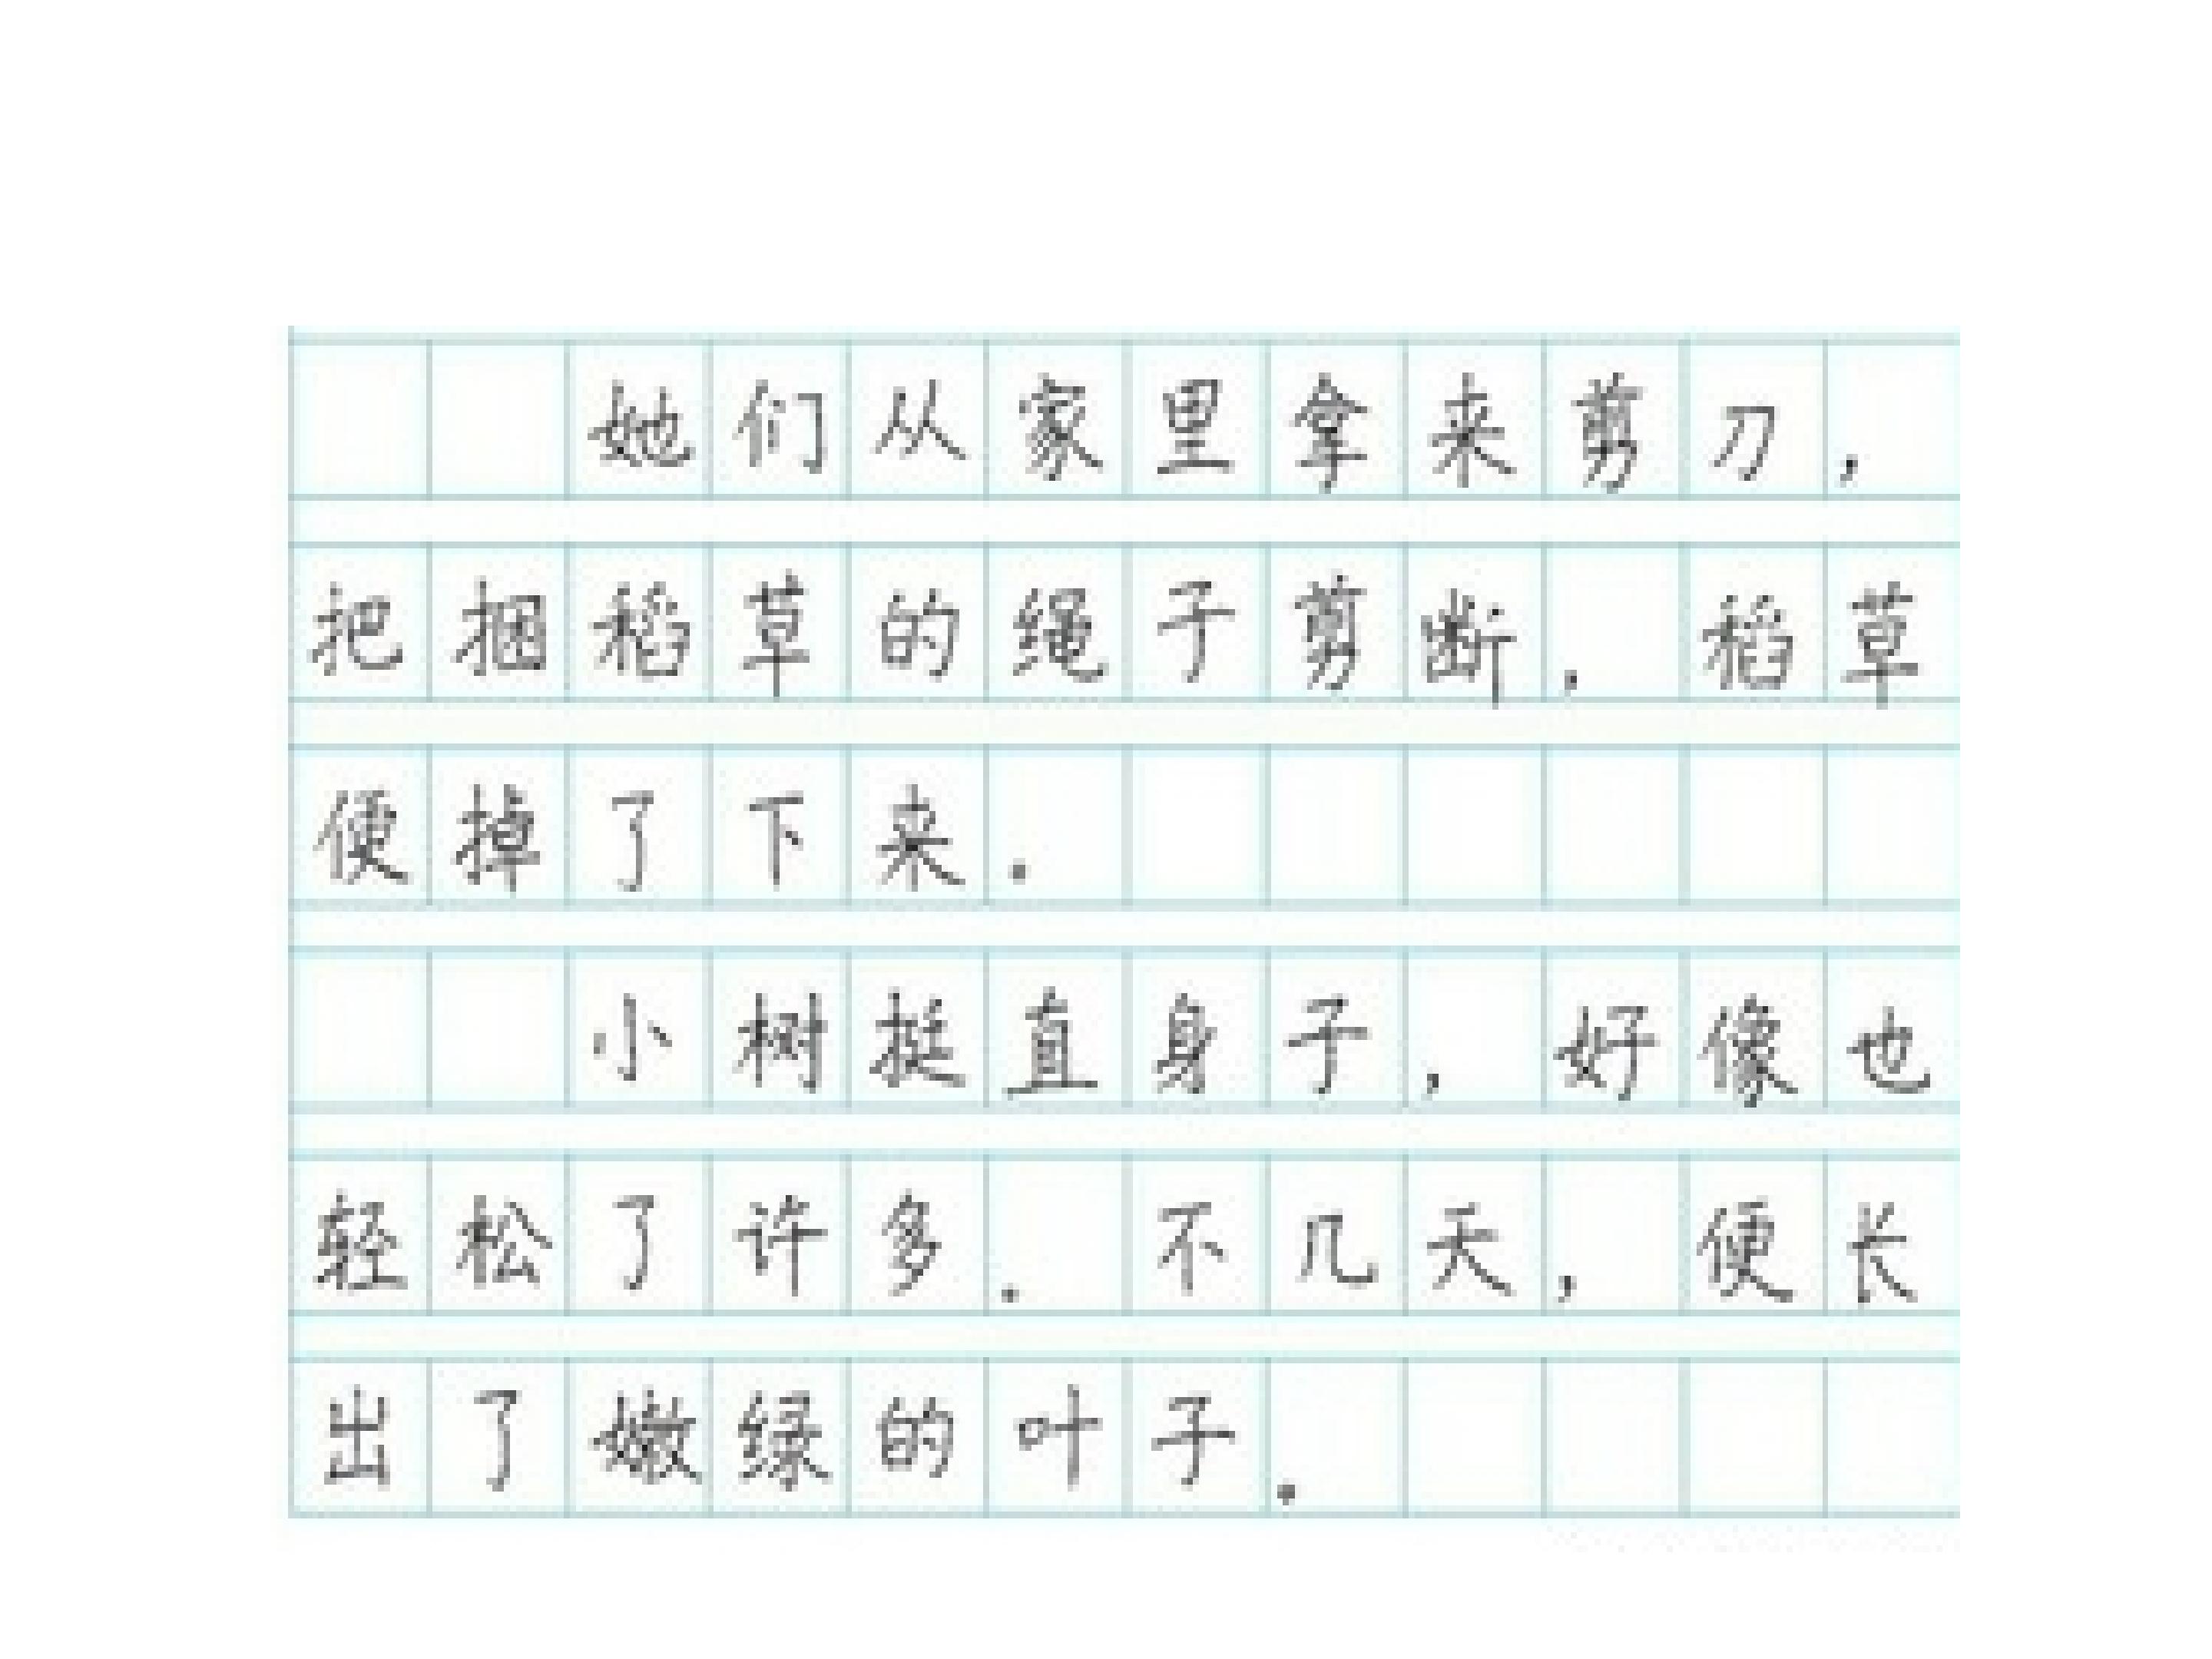 她们从家里拿来剪刀，
把捆稻草的绳子剪断，稻草
便掉了下来.
小树挺直身子，好像也
轻松了许多.不几天，便长
出了嫩绿的叶子.